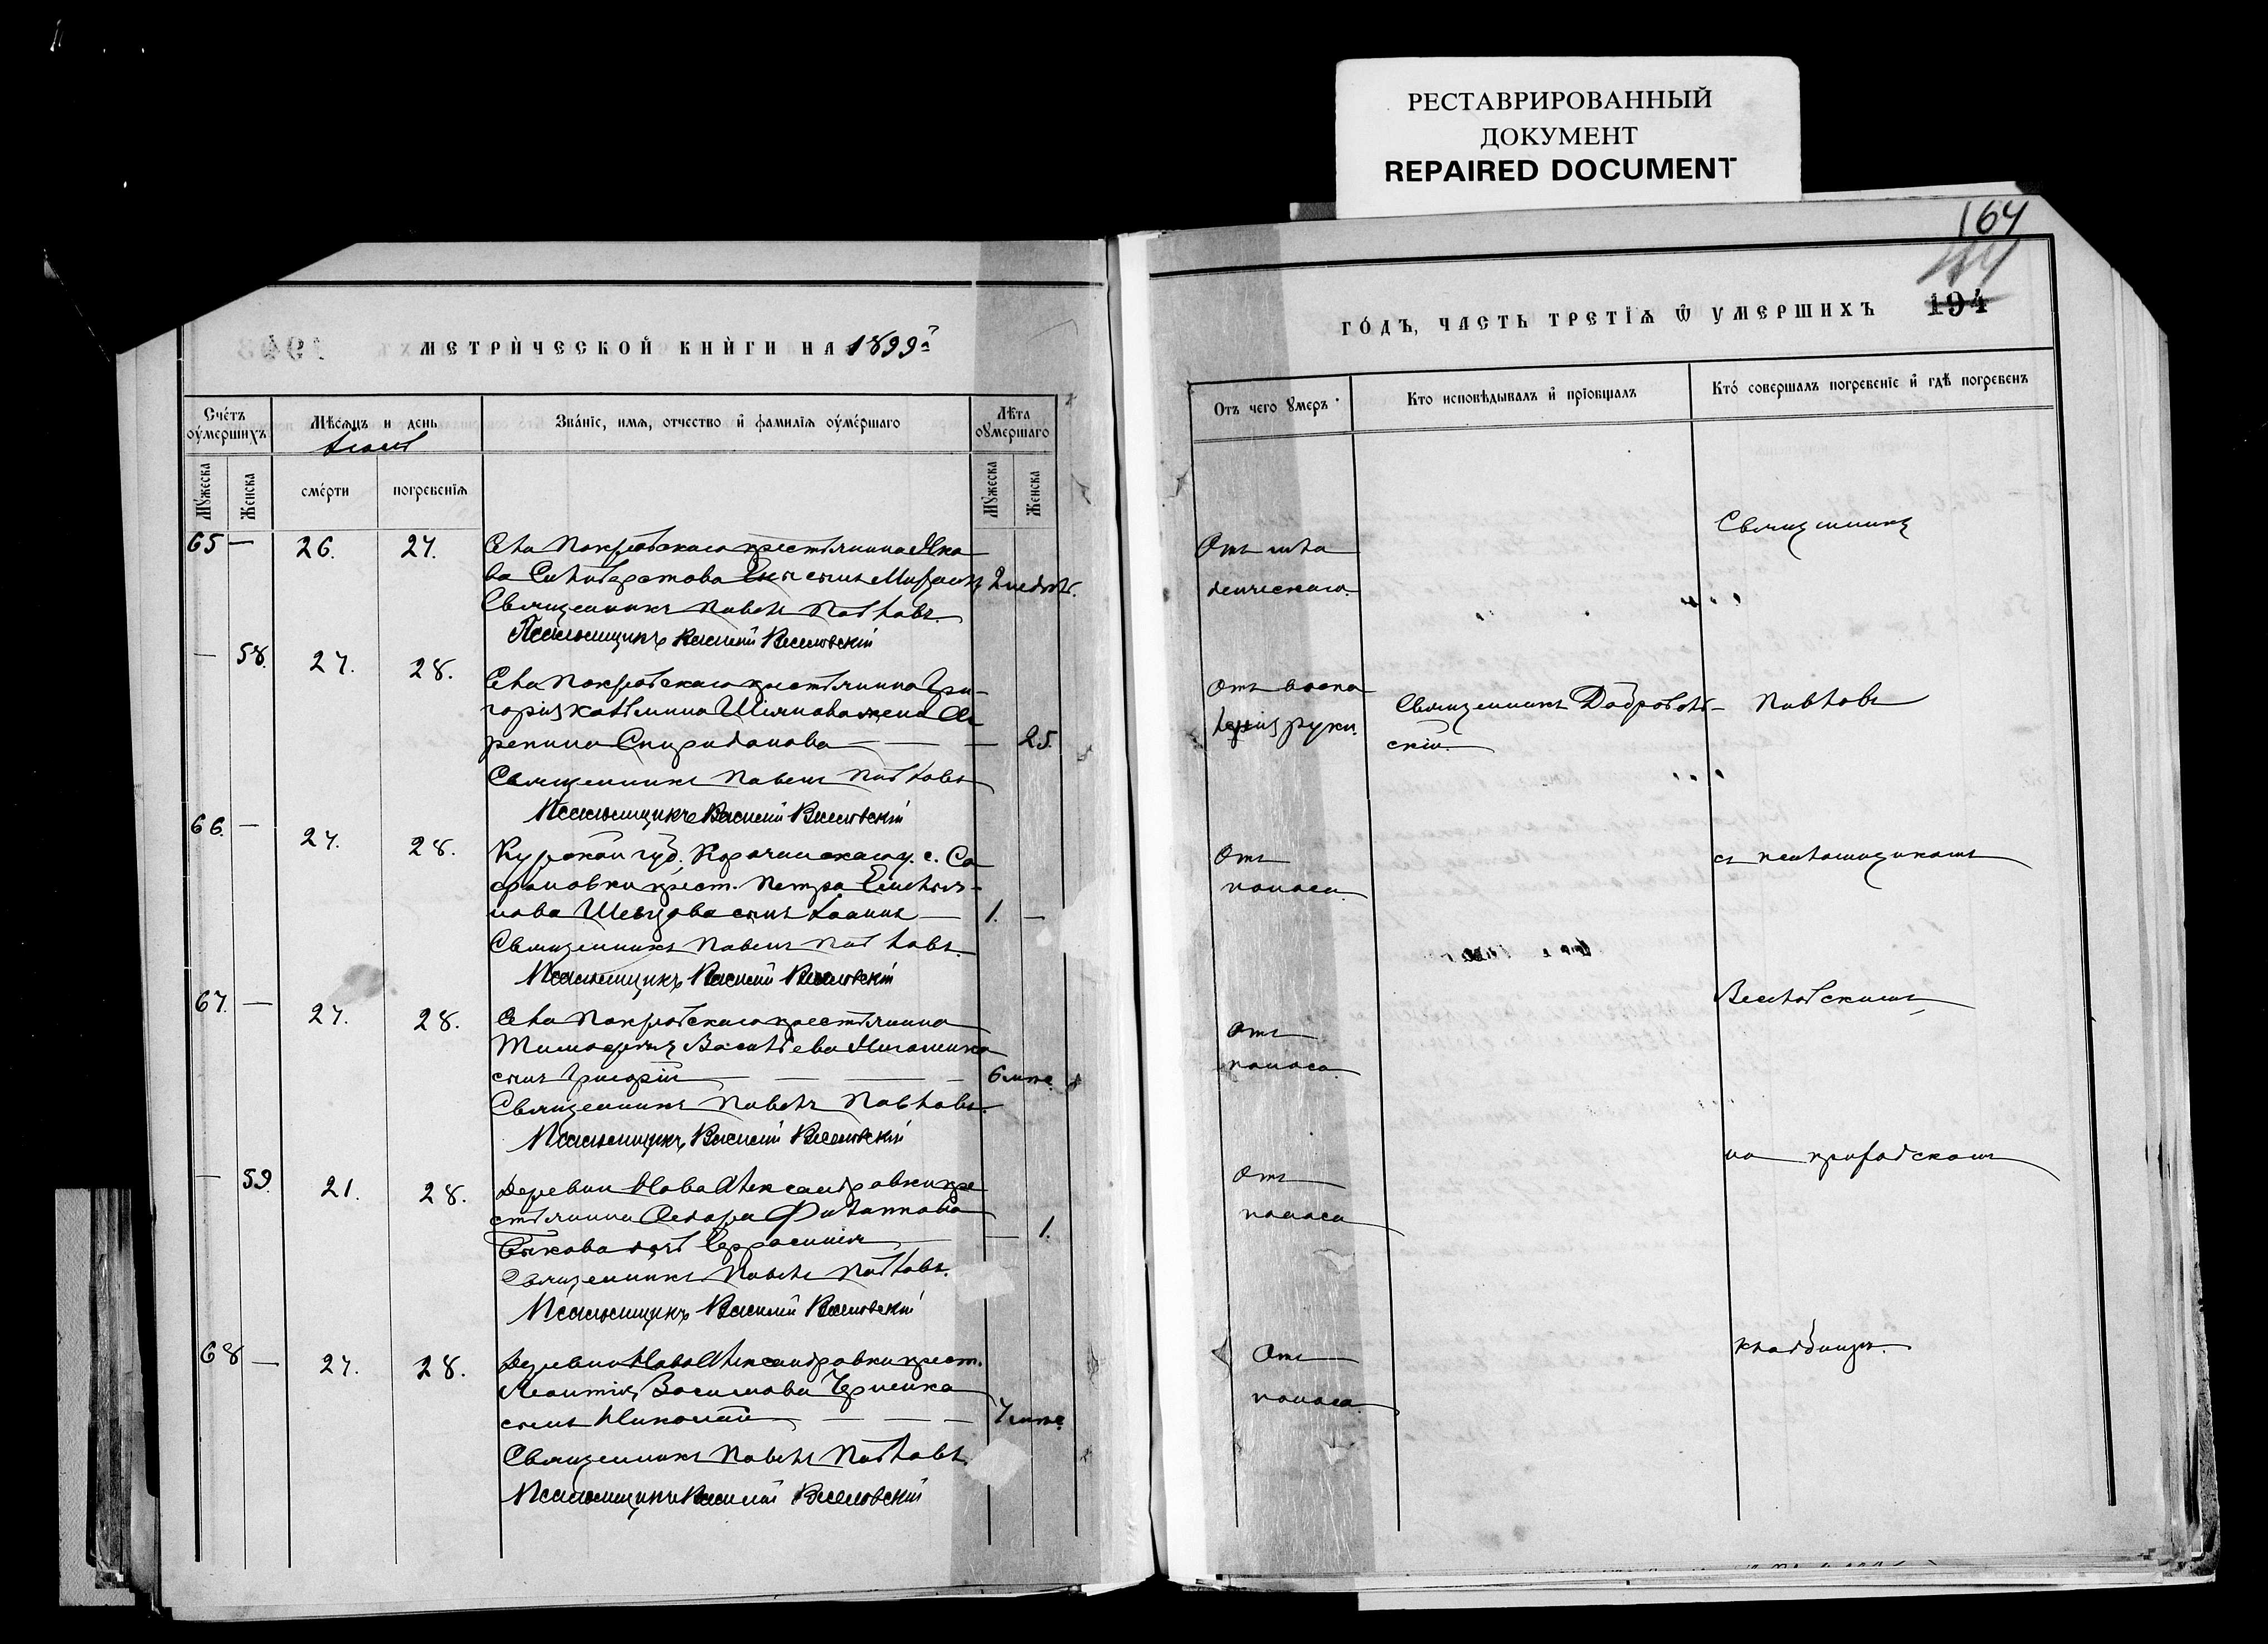 РЕСТАВРИРОВАННЫЙ
ДОКУМЕНТ
REPAIRED DOCUMENT
164
194
МЕТРИ́ЧЕСКОЙ КНИ́ГИ НА 1899й
Счетъ оумершихъ
Мѣсяцъ и день
Званіе, имя, отчество и фамилія оумершаго
Лѣта оумершаго
Мужеска
Женска
смерти
погребенія
Мужеска
Женска
65 — 26. 27. Села Покровскаго крестьянина Яко
ва Селиверстова сынъ Михаилъ 2 недѣл.
Священникъ Павелъ Павловъ
Псаломщикъ Василій Веселовскій
— 58. 27. 28. Села Покровскаго крестьянина Гри-
горія жена
Спиридонова — — — 25.
Священникъ Павелъ Павловъ
Псаломщикъ Василій Веселовскій
66. — 27. 28. Курской губ. Корочанскаго у. с. Са
фоновки крест. Петра Емелья-
нова Шевцова сынъ Іоаннъ — 1. —
Священникъ Павелъ Павловъ
Псаломщикъ Василій Веселовскій
67. — 27. 28. Села Покровскаго крестьянина
Тимофея Васильева
сынъ Григорій — — — 6 мѣс.
Священникъ Павелъ Павловъ
Псаломщикъ Василій Веселовскій
— 59. 21. 28. Деревни НовоАлександровки кре
стьянина Филиппова
Быкова дочь — 1.
Священникъ Павелъ Павловъ
Псаломщикъ Василій Веселовскій
68 — 27. 28. Деревни НовоАлександровки крест.
Леонтія
сынъ Николай — — — 7 мѣс.
Священникъ Павелъ Павловъ
Псаломщикъ Василій Веселовскій
ГОДЪ, ЧАСТЬ ТРЕТІЯ Ѿ УМЕРШИХЪ
Отъ чего умеръ
Кто исповѣдывалъ и пріобщалъ
Кто совершалъ погребеніе и гдѣ погребенъ
Отъ мла
денческаго
Священникъ
Отъ воспа
ленія руки.
Священникъ Добровол-
скій
Павловъ
Отъ
поноса
съ псаломщикомъ
Отъ
поноса
Веселовскимъ
Отъ
поноса
на приходскомъ
Отъ
поноса
кладбищѣ.